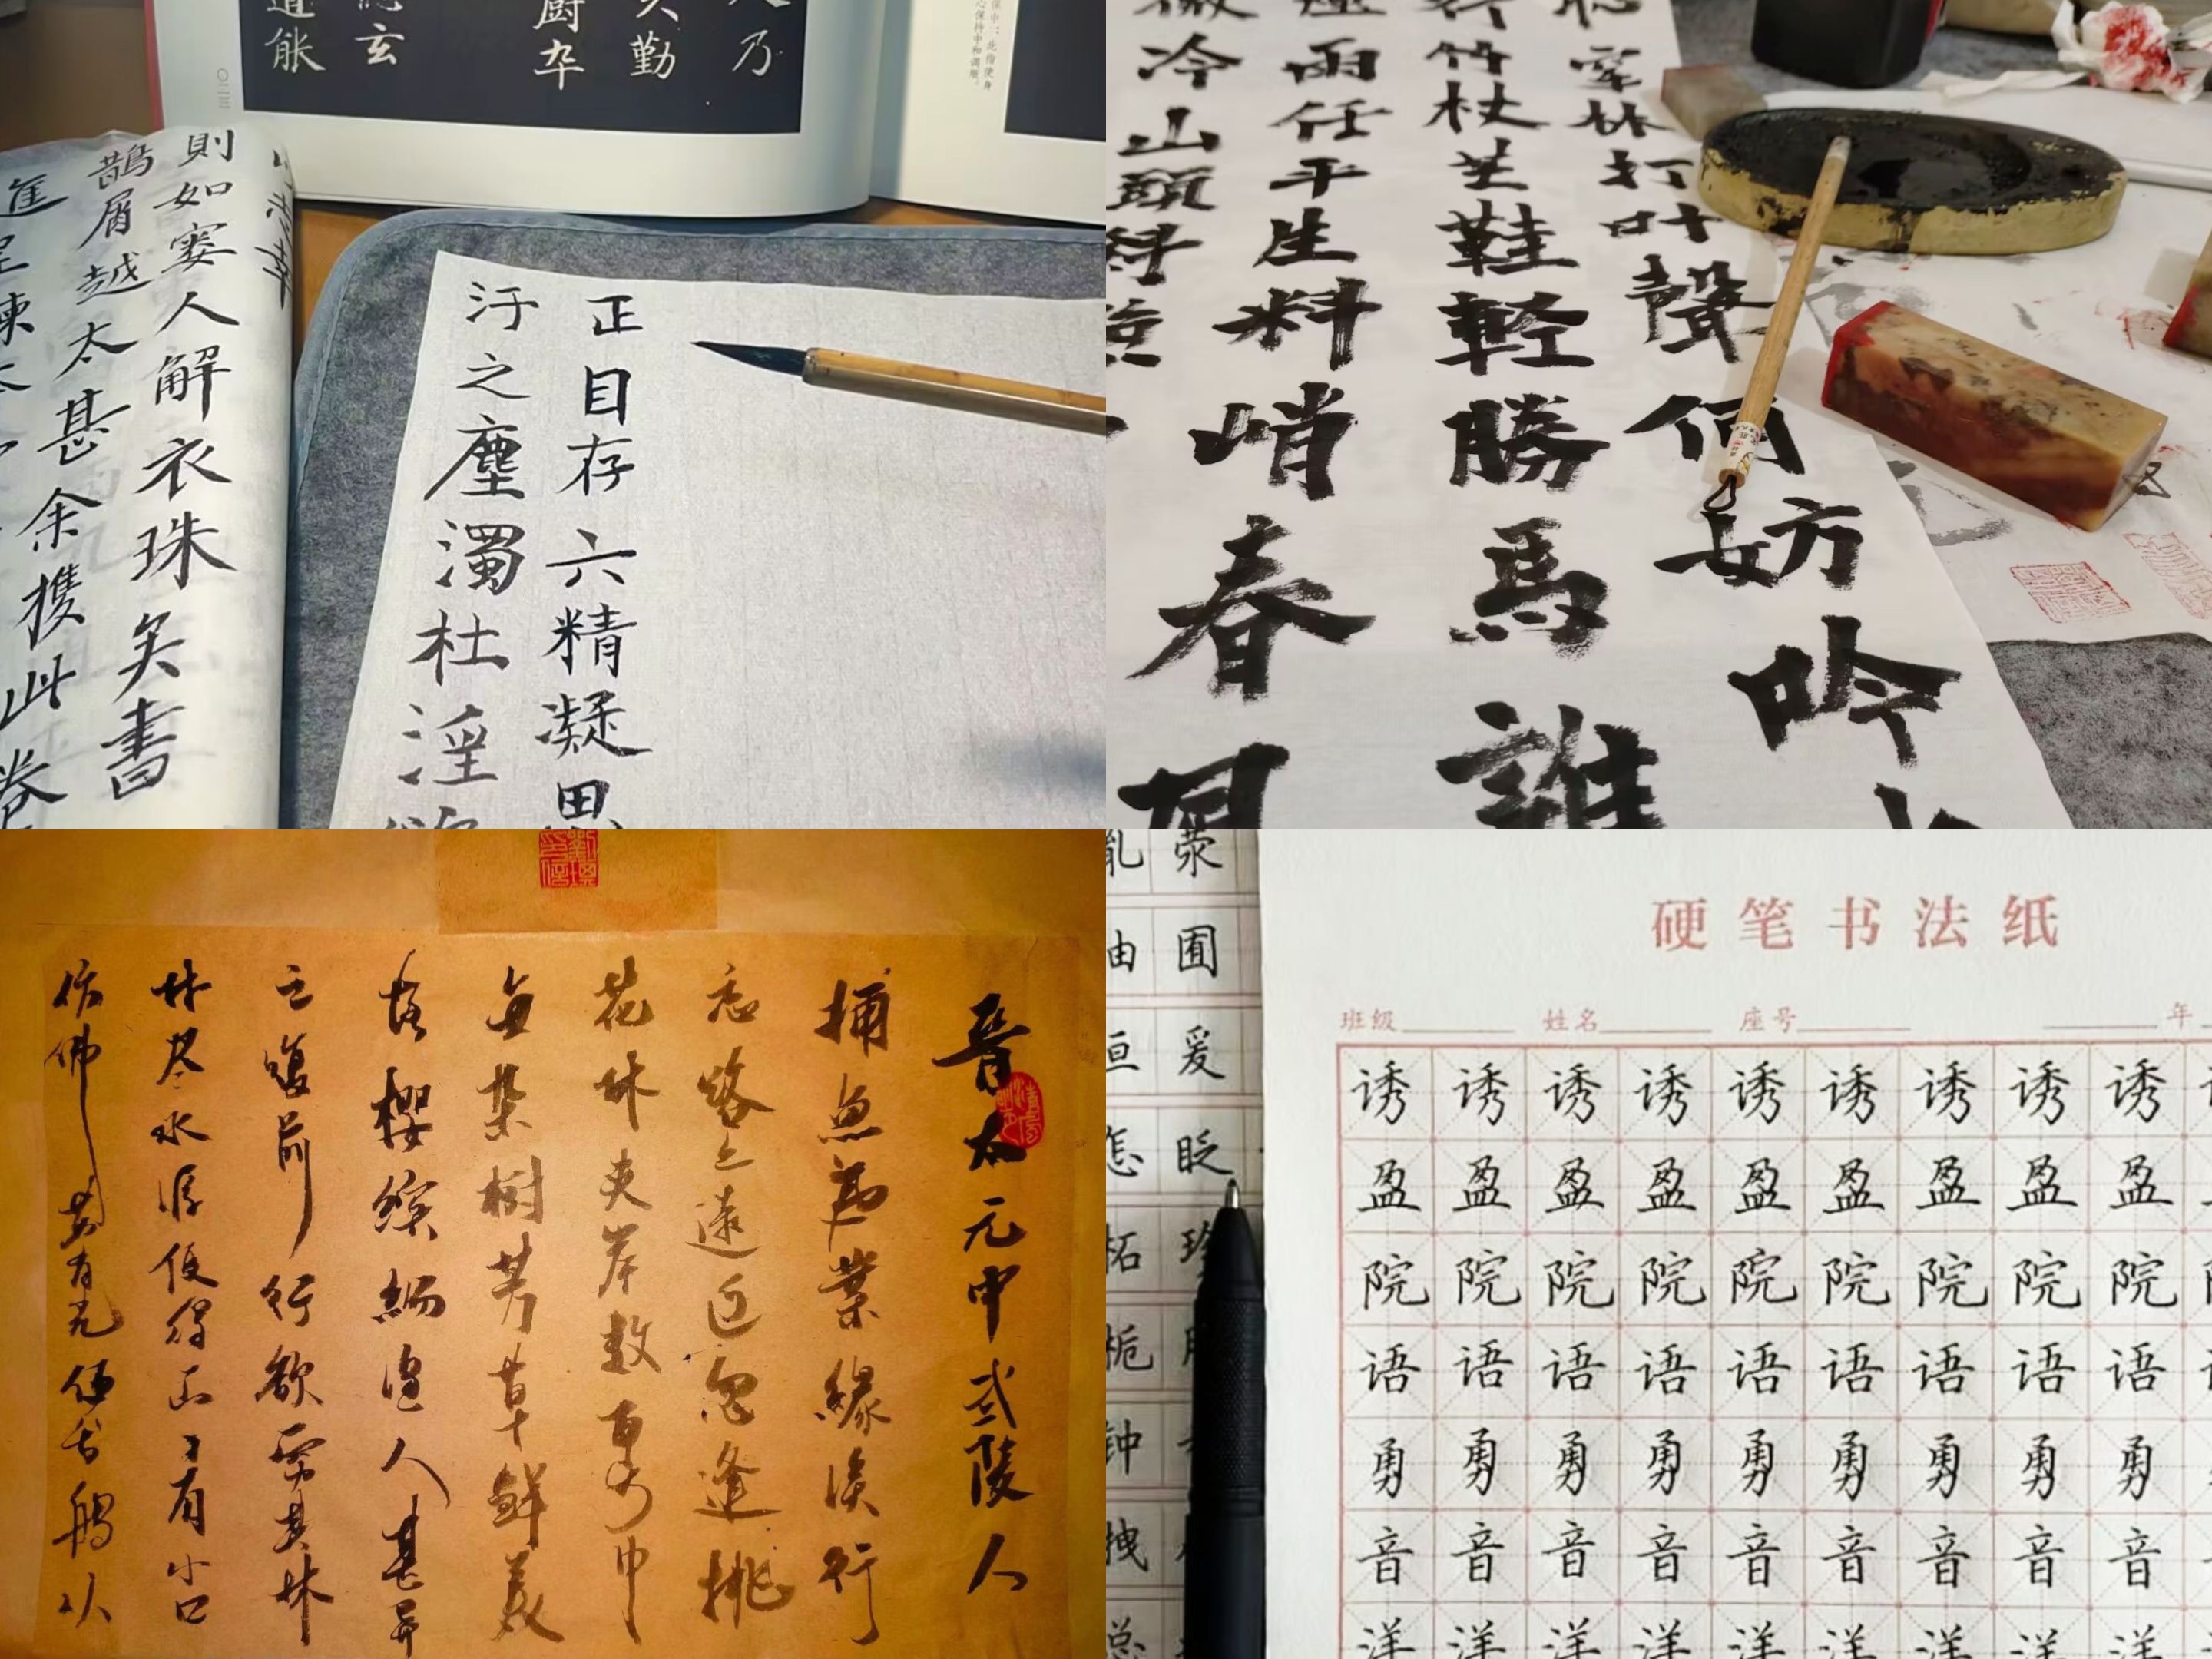 乃
勤
厨卒
玄
道能
則如窭人解衣珠矣書
鵲屑越太甚余攜此卷
正目存六精凝思
汙之塵濁杜淫
穿林打叶聲何妨吟
竹杖芒鞋輕勝馬誰
煙雨任平生料峭春
冷山頭斜
晉太元中武陵人
捕魚為業緣溪行
忘路之遠近忽逢桃
花林夾岸數百步中
無雜樹芳草鮮美
落櫻繽紛漁人甚異
之復前行欲窮其林
林尽水源便得一山山有小口
仿佛若有光便舍船从
荥
囿
爰
眨
由
怎
柘
栀
钟
拽
硬笔书法纸
班级 姓名 座号 年
诱诱诱诱诱诱诱诱诱
盈盈盈盈盈盈盈盈盈
院院院院院院院院院
语语语语语语语语语
勇勇勇勇勇勇勇勇勇
音音音音音音音音音
洋洋洋洋洋洋洋洋洋